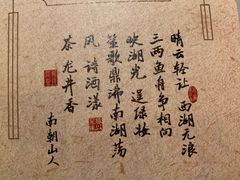 晴云轻让 西湖无浪
三两鱼舟争相向
映湖光 逞绿妆
笙歌鼎沸南湖荡
风 诗酒漾
茶龙井香
南朝山人